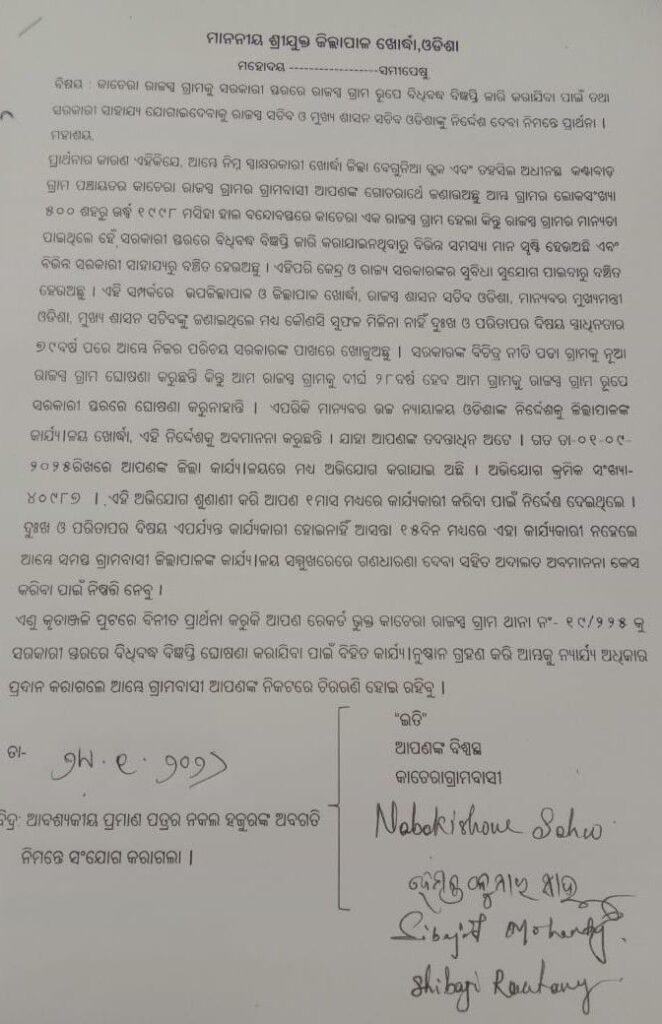 ମାନନୀୟ ଶ୍ରୀଯୁକ୍ତ ଜିଲ୍ଲାପାଳ ଖୋର୍ଦ୍ଧା,ଓଡିଶା
ମହୋଦୟ -------------------ସମୀପେଷୁ
ବିଷୟ : କାଚେରା ରାଜସ୍ୱ ଗ୍ରାମକୁ ସରକାରୀ ସ୍ତରରେ ରାଜସ୍ୱ ଗ୍ରାମ ରୂପେ ବିଧିବଦ୍ଧ ବିଜ୍ଞପ୍ତି ଜାରି କରାଯିବା ପାଇଁ ତଥା
ସରକାରୀ ସାହାଯ୍ୟ ଯୋଗାଇଦେବାକୁ ରାଜସ୍ୱ ସଚିବ ଓ ମୁଖ୍ୟ ଶାସନ ସଚିବ ଓଡିଶାଙ୍କୁ ନିର୍ଦ୍ଦେଶ ଦେବା ନିମନ୍ତେ ପ୍ରାର୍ଥନା ।
ମହାଶୟ,
ପ୍ରାର୍ଥନାର କାରଣ ଏହିକିଯେ, ଆମ୍ଭେ ନିମ୍ନ ସ୍ୱାକ୍ଷରକାରୀ ଖୋର୍ଦ୍ଧା ଜିଲ୍ଲା ବେଗୁନିଆ ବ୍ଲକ ଏବଂ ତହସିଲ ଅଧୀନସ୍ଥ କଣ୍ଟାବାଡ଼
ଗ୍ରାମ ପଞ୍ଚାୟତର କାଚେରା ରାଜସ୍ୱ ଗ୍ରାମର ଗ୍ରାମବାସୀ ଆପଣଙ୍କ ଗୋଚରାର୍ଥେ ଜଣାଉଅଛୁ ଆମ୍ଭ ଗ୍ରାମର ଲୋକସଂଖ୍ୟା
୫୦୦ ଶହରୁ ଉର୍ଦ୍ଧ୍ୱ ୧୯୯୮ ମସିହା ହାଲ ବନ୍ଦୋବସ୍ତରେ କାଚେରା ଏକ ରାଜସ୍ୱ ଗ୍ରାମ ହେଲା କିନ୍ତୁ ରାଜସ୍ୱ ଗ୍ରାମର ମାନ୍ୟତା
ପାଇଥିଲେ ହେଁ ସରକାରୀ ସ୍ତରରେ ବିଧିବଦ୍ଧ ବିଜ୍ଞପ୍ତି ଜାରି କରାଯାଇନଥିବାରୁ ବିଭିନ୍ନ ସମସ୍ୟା ମାନ ସୃଷ୍ଟି ହେଉଅଛି ଏବଂ
ବିଭିନ୍ନ ସରକାରୀ ସାହାଯ୍ୟରୁ ବଞ୍ଚିତ ହେଉଅଛୁ । ଏହିପରି କେନ୍ଦ୍ର ଓ ରାଜ୍ୟ ସରକାରଙ୍କର ସୁବିଧା ସୁଯୋଗ ପାଇବାରୁ ବଞ୍ଚିତ
ହେଉଅଛୁ । ଏହି ସମ୍ପର୍କରେ ଉପଜିଲ୍ଲାପାଳ ଓ ଜିଲ୍ଲାପାଳ ଖୋର୍ଦ୍ଧା, ରାଜସ୍ୱ ଶାସନ ସଚିବ ଓଡିଶା, ମାନ୍ୟବର ମୁଖ୍ୟମନ୍ତ୍ରୀ
ଓଡିଶା, ମୁଖ୍ୟ ଶାସନ ସଚିବଙ୍କୁ ଜଣାଇଥିଲେ ମଧ୍ୟ କୌଣସି ସୁଫଳ ମିଳିନା ନାହିଁ ଦୁଃଖ ଓ ପରିତାପର ବିଷୟ ସ୍ୱାଧୀନତାର
୭୯ବର୍ଷ ପରେ ଆମ୍ଭେ ନିଜର ପରିଚୟ ସରକାରଙ୍କ ପାଖରେ ଖୋଜୁଅଛୁ । ସରକାରଙ୍କ ବିଚିତ୍ର ନୀତି ପଡା ଗ୍ରାମକୁ ନୂଆ
ରାଜସ୍ୱ ଗ୍ରାମ ଘୋଷଣା କରୁଛନ୍ତି କିନ୍ତୁ ଆମ ରାଜସ୍ୱ ଗ୍ରାମକୁ ଦୀର୍ଘ ୨୮ବର୍ଷ ହେବ ଆମ ଗ୍ରାମକୁ ରାଜସ୍ୱ ଗ୍ରାମ ରୂପେ
ସରକାରୀ ସ୍ତରରେ ଘୋଷଣା କରୁନାହାନ୍ତି । ଏପରିକି ମାନ୍ୟବର ଉଚ୍ଚ ନ୍ୟାୟାଳୟ ଓଡିଶାଙ୍କ ନିର୍ଦ୍ଦେଶକୁ ଜିଲ୍ଲାପାଳଙ୍କ
କାର୍ଯ୍ୟାଳୟ ଖୋର୍ଦ୍ଧା, ଏହି ନିର୍ଦ୍ଦେଶକୁ ଅବମାନନା କରୁଛନ୍ତି । ଯାହା ଆପଣଙ୍କ ତଦନ୍ତାଧିନ ଅଟେ । ଗତ ତା-୦୧-୦୯-
୨୦୨୫ରିଖରେ ଆପଣଙ୍କ ଜିଲ୍ଲା କାର୍ଯ୍ୟାଳୟରେ ମଧ୍ୟ ଅଭିଯୋଗ କରାଯାଇ ଅଛି । ଅଭିଯୋଗ କ୍ରମିକ ସଂଖ୍ୟା-
୪୦୯୮୭ । ଏହି ଅଭିଯୋଗ ଶୁଣାଣୀ କରି ଆପଣ ୧ମାସ ମଧ୍ୟରେ କାର୍ଯ୍ୟକାରୀ କରିବା ପାଇଁ ନିର୍ଦ୍ଦେଶ ଦେଇଥିଲେ ।
ଦୁଃଖ ଓ ପରିତାପର ବିଷୟ ଏପର୍ଯ୍ୟନ୍ତ କାର୍ଯ୍ୟକାରୀ ହୋଇନାହିଁ ଆସନ୍ତା ୧୫ଦିନ ମଧ୍ୟରେ ଏହା କାର୍ଯ୍ୟକାରୀ ନହେଲେ
ଆମ୍ଭେ ସମସ୍ତ ଗ୍ରାମବାସୀ ଜିଲ୍ଲାପାଳଙ୍କ କାର୍ଯ୍ୟାଳୟ ସମ୍ମୁଖରେରେ ଗଣଧାରଣା ଦେବା ସହିତ ଅଦାଲତ ଅବମାନନା କେସ
କରିବା ପାଇଁ ନିଷ୍ପତି ନେବୁ ।
ଏଣୁ କୃତାଞ୍ଜଳି ପୁଟରେ ବିନୀତ ପ୍ରାର୍ଥନା କରୁକି ଆପଣ ରେକର୍ଡ ଭୁକ୍ତ କାଚେରା ରାଜସ୍ୱ ଗ୍ରାମ ଥାନା ନଂ- ୧୯/୨୨୫ କୁ
ସରକାରୀ ସ୍ତରରେ ବିଧିବଦ୍ଧ ବିଜ୍ଞପ୍ତି ଘୋଷଣା କରାଯିବା ପାଇଁ ବିହିତ କାର୍ଯ୍ୟାନୁଷ୍ଠାନ ଗ୍ରହଣ କରି ଆମ୍ଭକୁ ନ୍ୟାର୍ଯ୍ୟ ଅଧିକାର
ପ୍ରଦାନ କରାଗଲେ ଆମ୍ଭେ ଗ୍ରାମବାସୀ ଆପଣଙ୍କ ନିକଟରେ ଚିରଋଣି ହୋଇ ରହିବୁ ।
"ଇତି"
ଆପଣଙ୍କ ବିଶ୍ୱସ୍ଥ
କାଚେରାଗ୍ରାମବାସୀ
ତା-
ବିଦ୍ର: ଆବଶ୍ୟକୀୟ ପ୍ରମାଣ ପତ୍ରର ନକଲ ହଜୁରଙ୍କ ଅବଗତି
ନିମନ୍ତେ ସଂଯୋଗ କରାଗଲା ।
Nabakishore Sahoo
ହେମନ୍ତ କୁମାର ସାହୁ
Sibajit Mohanty
Shibaji Rautaray